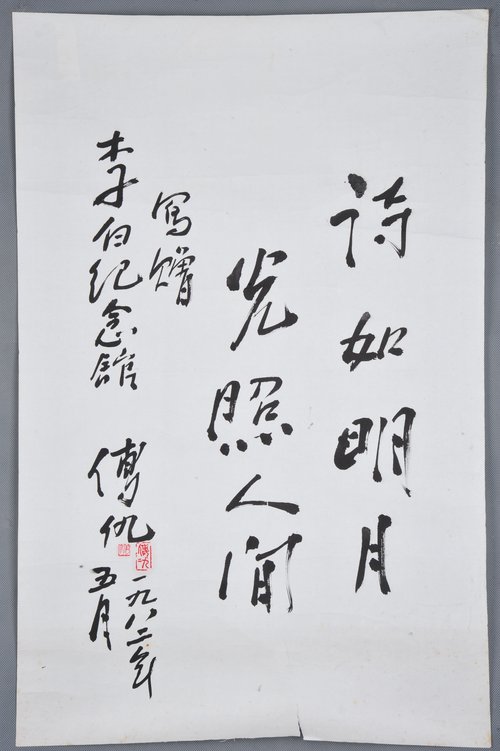 詩如明月
光照人间
寫贈
李白纪念館
傅仇
一九八二年
五月
傅仇